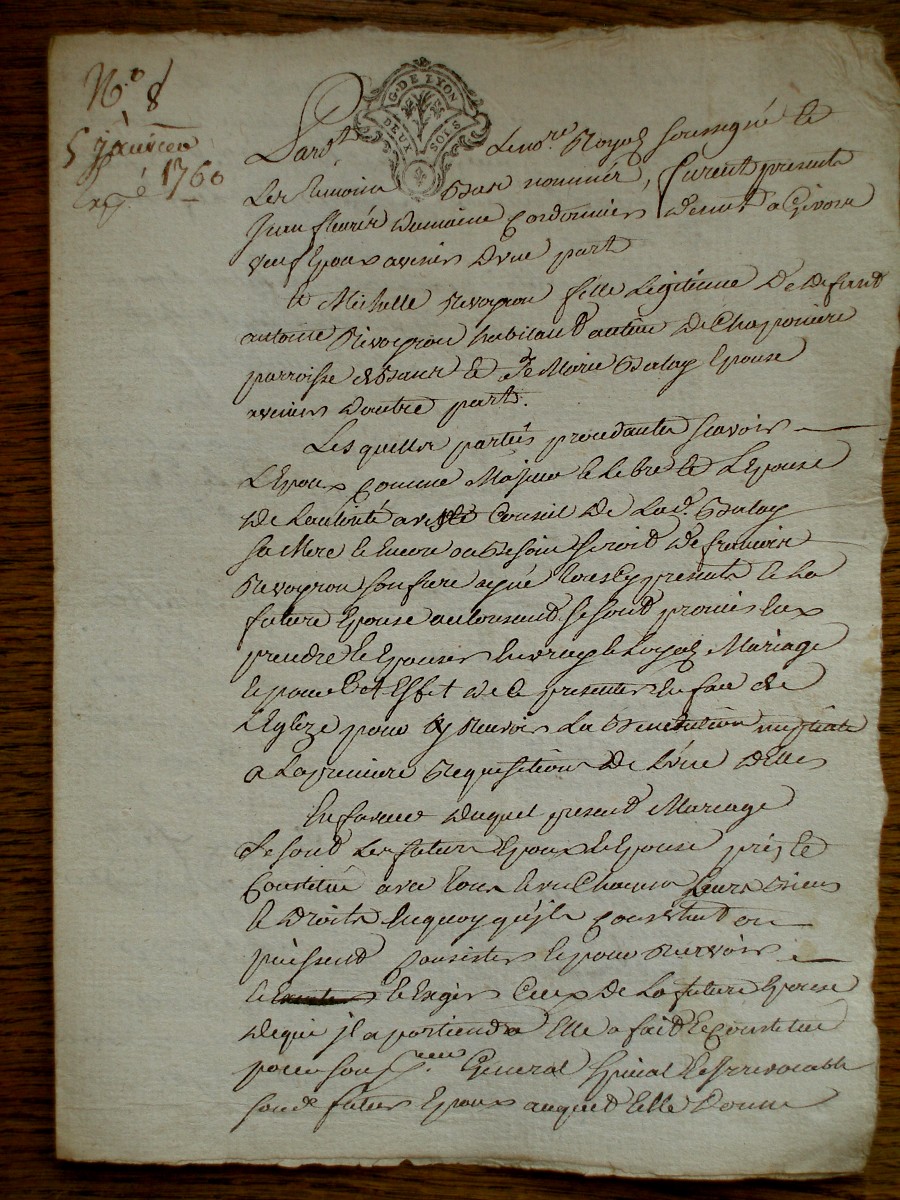 N.o 8
5 janvier
1760
G. DE LYON
DEUX SOLS
Pard.t Le no.re Royal soussigné et
Les temoins Bas nommés, furent presents
Jean fleury Dumaine Cordonnier demt a Givors
veuf Epoux avenir d'une part
Et Michelle Revoyron fille Legitime de deffunt
antoine Revoyron habitant de Chaponiere
parroisse et de Marie Balay Epouse
avenir d'autre part.
Lesquelles parties procedantes scavoir
L'Epoux comme Majeur et Libre et L'Epouse
de L'autorité avis et Conseil de Lad. Balay
sa Mere et Encore au Besoin seroit de
Revoyron son frere ayné tous Cy presents et La
future Epouse authorisant, se sont promis Eux
prendre et Epouser En vray et Loyal Mariage
et pour Cet Effet de se presenter En face de
L'Eglize pour y Recevoir La Benediction nuptiale
a La premiere Requisition de L'une d'Elles
En faveur duquel present Mariage
se sont Les futurs Epoux et Epouse pris et
Constitué avec tous et un Chacun Leurs Biens
et Droits En quoy qu'ils Consistent ou
puissent Consister et pour Recevoir
et Exiger Ceux de La future Epouse
de qui il apartiendra Elle a fait et Constitué
pour son General special et Irrevocable
sond. futur Epoux auquel Elle Donne